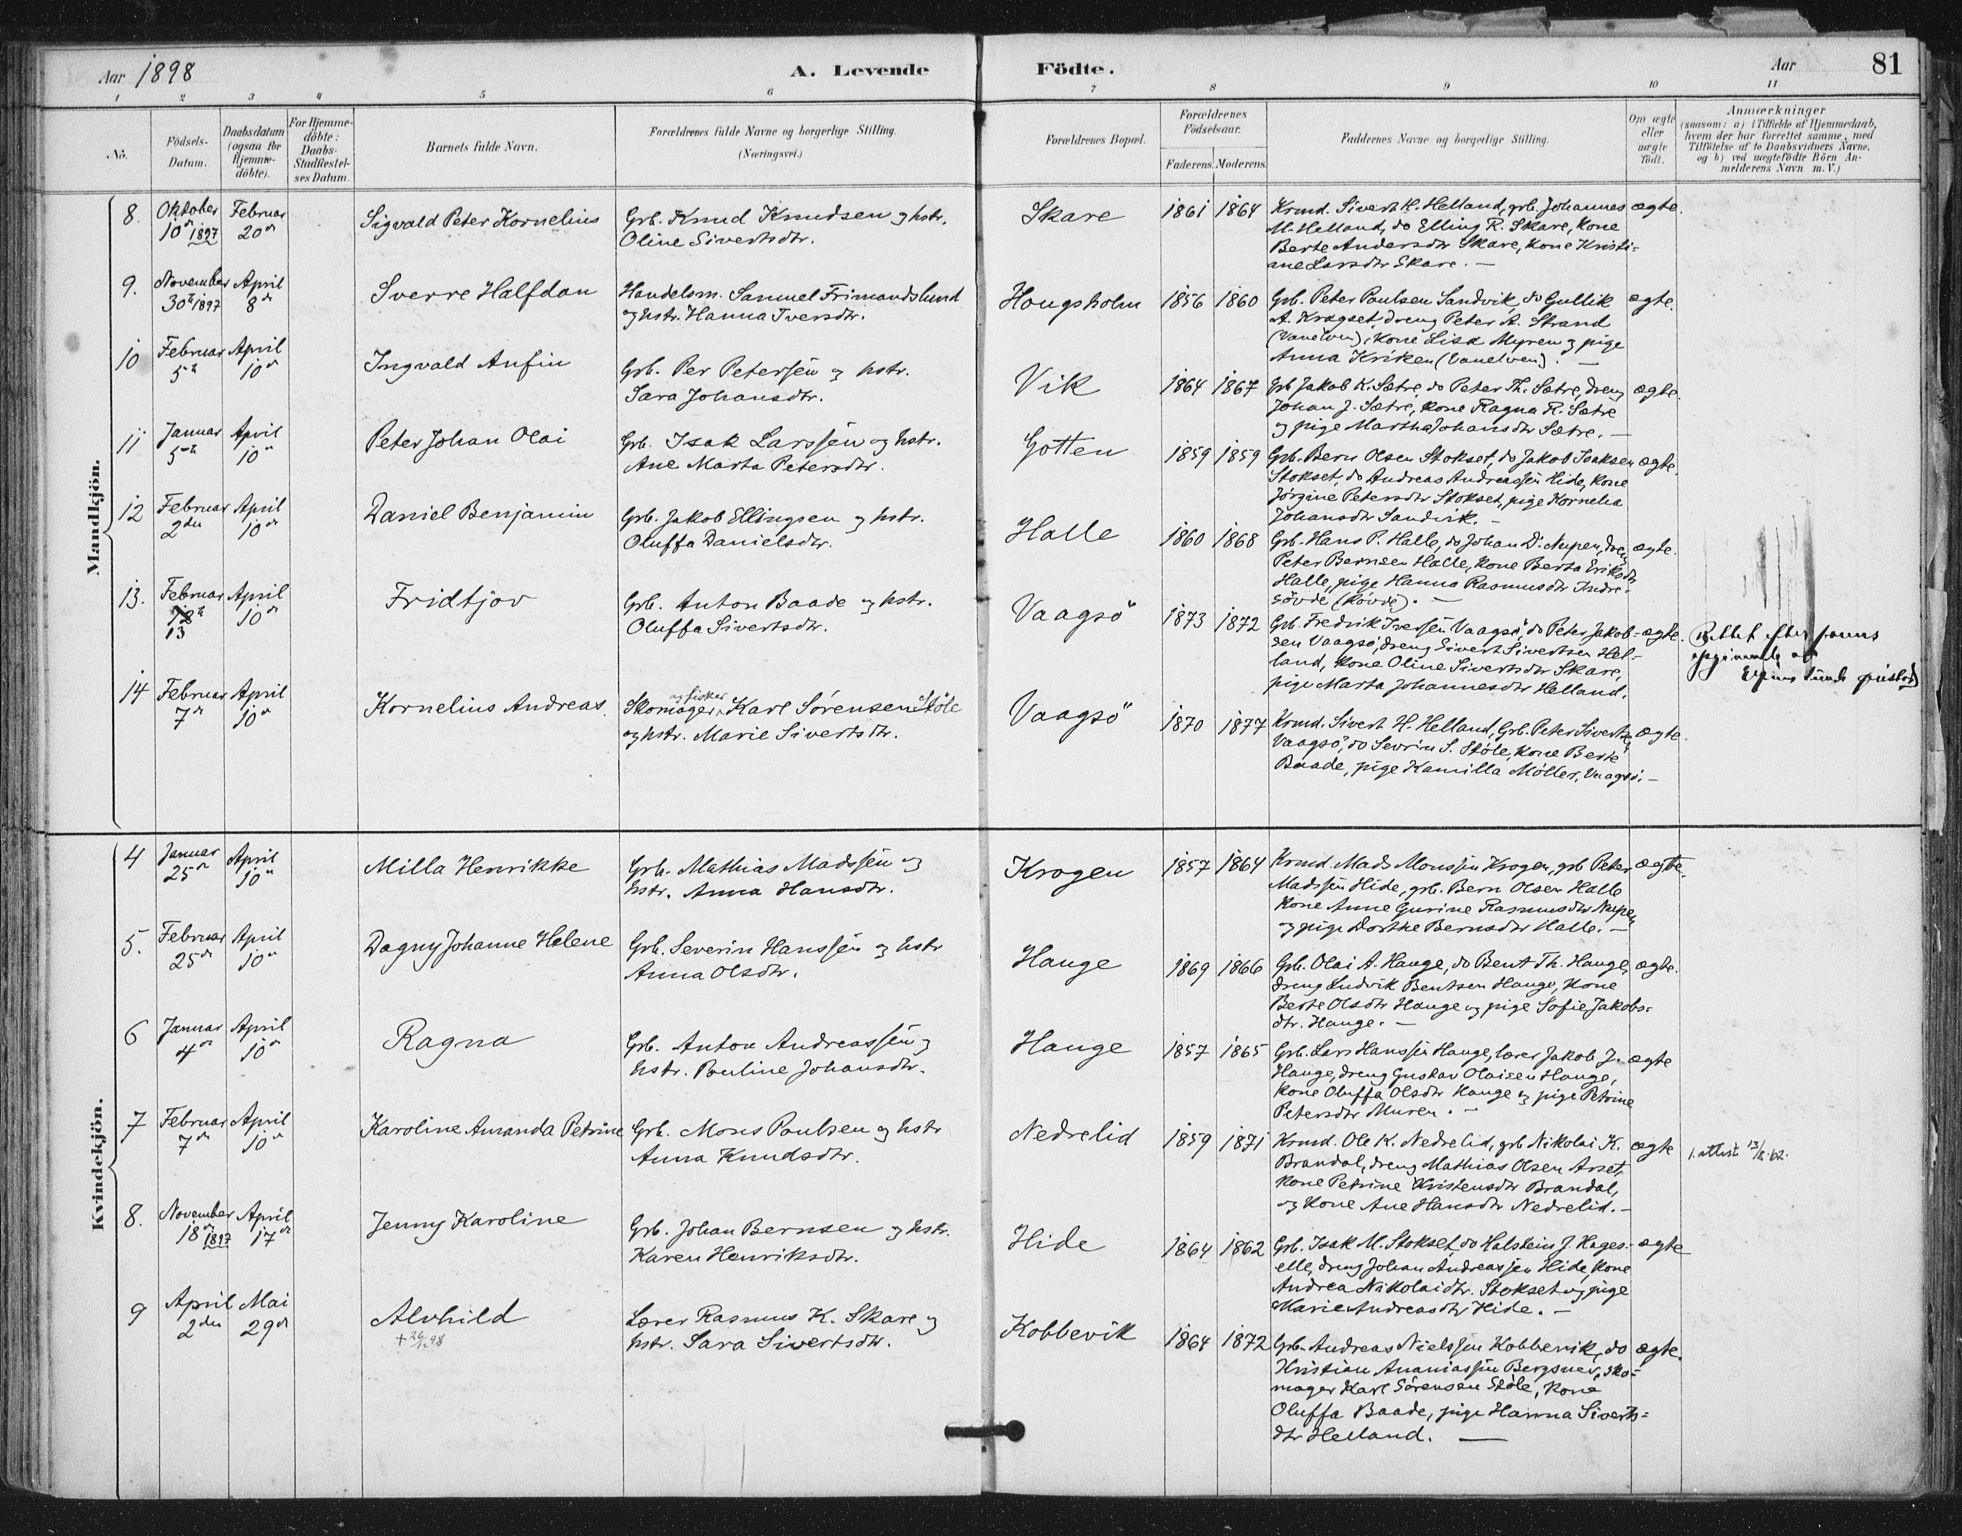 Aar 1898
A. Levende
Födte.
Aar
81
1 2 3 4 5 6 7 8 9 10 11
No.
Födsels-
Datum.
Daabsdatum
(ogsaa for
Hjemme-
döbte).
For Hjemme-
döbte:
Daabs-
Stadfestel-
ses Datum.
Barnets fulde Navn.
Forældrenes fulde Navne og borgerlige Stilling.
(Næringsvei.)
Forældrenes Bopæl.
Forældrenes
Födselsaar.
Faderens. Moderens.
Faddernes Navne og borgerlige Stilling.
Om ægte
eller
uægte
födt.
Anmærkninger
(saasom: a) i Tilfælde af Hjemmedaab,
hvem der har forrettet samme, med
Tilföielse af to Daabsvidners Navne,
og b) ved uægtefödte Börn An-
melderens Navn m. V.)
Mandkjön.
8. Oktober Februar Sigvald Peter Kornelius Grb. Knud Knudsen og hstr. Skare 1861 1864 Krmd. Sivert H. Helland, grb. Johannes ægte.
10de 1897 20de Oline Sivertsdtr. M. Helland, do Elling R. Skare, Kone
Berte Andersdtr Skare, Kone Kristi-
ane Larsdtr Skare. —
9. November April Sverre Halfdan Handelsm. Samuel Frimandslund Hougsholm 1856 1860 Grb. Peter Poulsen Sandvik, do Gullik ægte.
30te 1897 8de og hstr. Hanna Iversdtr. A. Kragset, dreng Peter A. Strand
(Vanelven), Kone Lisa Myren og pige
Anna Kriken (Vanelven). —
10 Februar April Ingvald Anfin Grb. Per Petersen og hstr. Vik 1864 1867 Grb Jakob K. Sætre, do Peter Th. Sætre, dreng ægte.
5te 10de Sara Johansdtr. Johan J. Sætre, Kone Ragna R. Sætre
og pige Martha Johansdtr Sætre. —
11 Januar April Peter Johan Olai Grb. Isak Larssen og hstr. Gotten 1859 1859 Grb. Bern Olsen Stokset, do Jakob Isaksen ægte.
5te 10de Ane Marta Petersdtr. Stokset, do Andreas Andreassen Hide, Kone
Jörgine Petersdtr Stokset, pige Kornelia
Johansdtr Sandvik. —
12 Februar April Daniel Benjamin Grb. Jakob Ellingsen og hstr. Halle 1860 1868 Grb. Hans P. Halle, do Johan D. Nupen, dreng ægte.
2den 10de Oluffa Danielsdtr. Peter Bernsen Halle, Kone Berta Eriksdtr
Halle, pige Hanna Rasmusdtr Indre-
sövde (Rovde). —
13. Februar April Fridtjov Grb. Anton Baade og hstr. Vaagsö 1873 1872 Grb. Fredrik Iversen Vaagsö, do Peter Jakob- ægte.
13 10de Oluffa Sivertsdtr. sen Vaagsö, dreng Sivert Sivertsen Hel-
land, Kone Oline Sivertsdtr Skare,
pige Marta Johannesdtr Helland.
Rettet efter
14 Februar April Kornelius Andreas. Skomager og fisker Karl Sørensen Støle Vaagsö 1870 1877 Krmd. Sivert H. Helland, Grb. Peter Sivertsen ægte.
7de 10de og hstr. Marie Sivertsdtr. Vaagsö, do Sevrin S. Støle, Kone Berte
Baade, pige Kamilla Möller, Vaagsö. —
Kvindekjön.
4 Januar April Milla Henrikke Grb. Mathias Madssen og Krogen 1857 1864 Krmd. Mads Monssen Krogen, grb Peter ægte.
25de 10de hstr. Anna Hansdtr. Madssen Hide, grb. Bern Olsen Halle
Kone Anne Gurine Rasmusdtr Nupen
og pige Dorthe Bernsdtr Halle. —
5. Februar April Dagny Johanne Helene Grb. Severin Hanssen og hstr Hauge 1869 1866 Grb. Olai A. Hauge, do Bent Th. Hauge, ægte.
25de 10de Anna Olsdtr. dreng Ludvik Bentsen Hauge, Kone
Berte Olsdtr Hauge og pige Sofie Jakobs-
dtr. Hauge. —
6 Januar April Ragna Grb. Anton Andreassen og Hauge 1857 1865 Grb. Lars Hanssen Hauge, lærer Jakob J. ægte
4de 10de hstr. Pauline Johansdtr. Hauge, dreng Gustav Olaisen Hauge,
Kone Oluffa Olsdtr Hauge og pige Petrine
Petersdtr Muren. —
7 Februar April Karoline Amanda Petrine Grb. Mons Poulsen og hstr Nedrelid 1859 1871 Krmd. Ole K. Nedrelid, grb Nikolai K. ægte 1. attest 13/8.62.
7de 10de Anna Knudsdtr. Brandal, dreng Mathias Olsen Arset,
Kone Petrine Kristensdtr Brandal,
og Kone Ane Hansdtr Nedrelid. —
8. November April Jenny Karoline Grb. Johan Bernsen og hstr. Hide 1864 1862 Grb. Isak M. Stokset, do Halstein J. Hages- ægte
18de 1897 17de Karen Henriksdtr. elle, dreng Johan Andreassen Hide, Kone
Andrea Nikolaidtr. Stokset og pige
Marie Andreasdtr Hide. —
9 April Mai Alvhild Lærer Rasmus K. Skare og Kobbevik 1864 1872 Grb. Andreas Nielssen Kobbevik, do ægte.
2den 29de hstr. Sara Sivertsdtr. Kristian Ananiassen Bergsnev, sko-
mager Karl Sörensen Støle, Kone
Oluffa Baade, pige Hanna Siverts-
dtr Helland. —